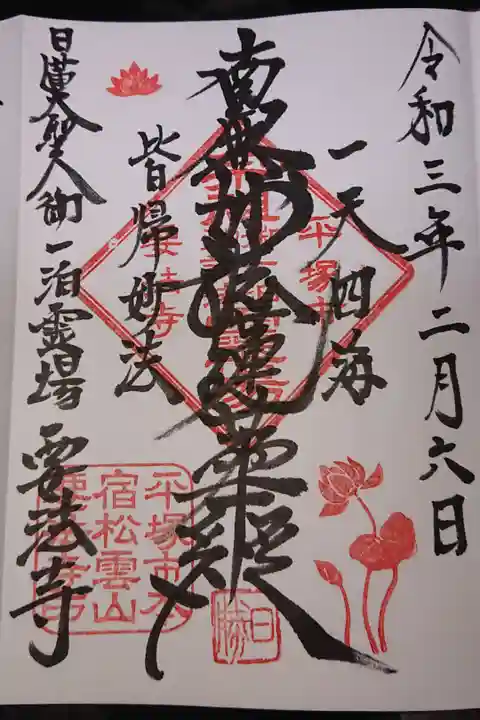 令和三年二月六日
一天四海
南無妙法蓮華経
皆帰妙法
日蓮大聖人御一泊霊場 要法寺
平塚市
平塚市本
宿松雲山
要法寺印
日